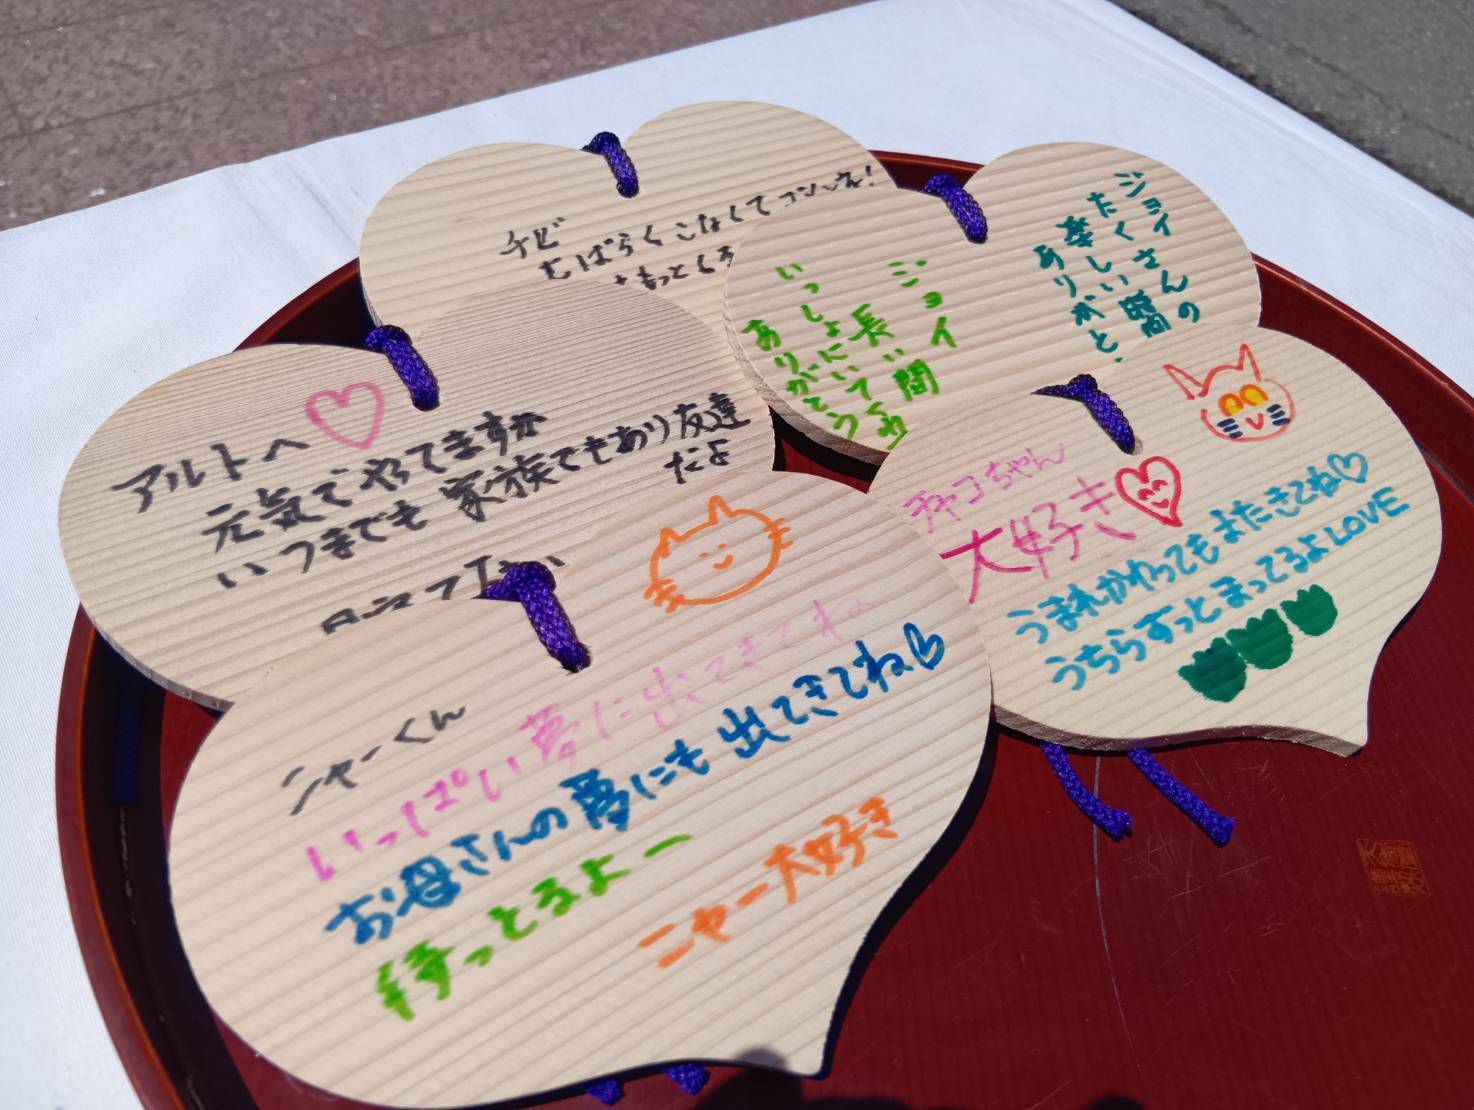 チビ
しばらくこなくてゴメンネ!
ジョイさんの
たくさん
楽しい時間
ありがと
ジョイ
長い間
いっしょにいてくれ
ありがとう
アルトへ
元気でやってますか
いつまでも家族でもあり友達
だよ
チャコちゃん
大好き
うまれかわってもまたきてね♡
うちらずっとまってるよLOVE
ニャーくん
いっぱい夢に出てきてね
お母さんの夢にも出てきてね♡
待っとるよー
ニャー大好き